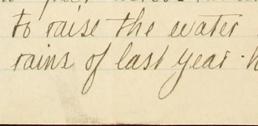 to raise the water
rains of last year.